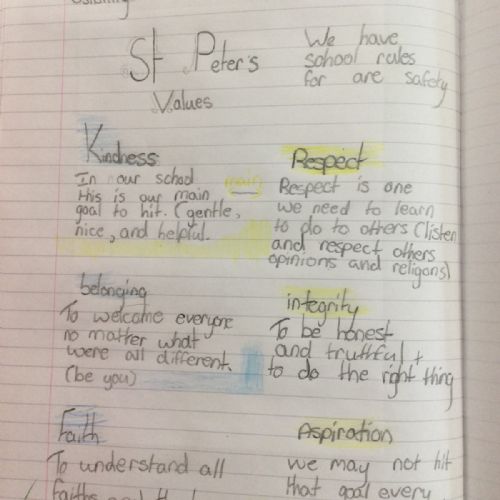 St Peter's
Values
We have
school rules
for are safety
Kindness
In our school
this is our main
goal to hit. (gentle,
nice, and helpful.
Respect
Respect is one
we need to learn
to do to others (listen
and respect others
opinions and religons)
belonging
To welcome everyone
no matter what
were all different.
(be you)
integrity
To be honest
and truthful +
to do the right thing
Faith
To understand all
faiths and
Aspiration
we may not hit
that goal every